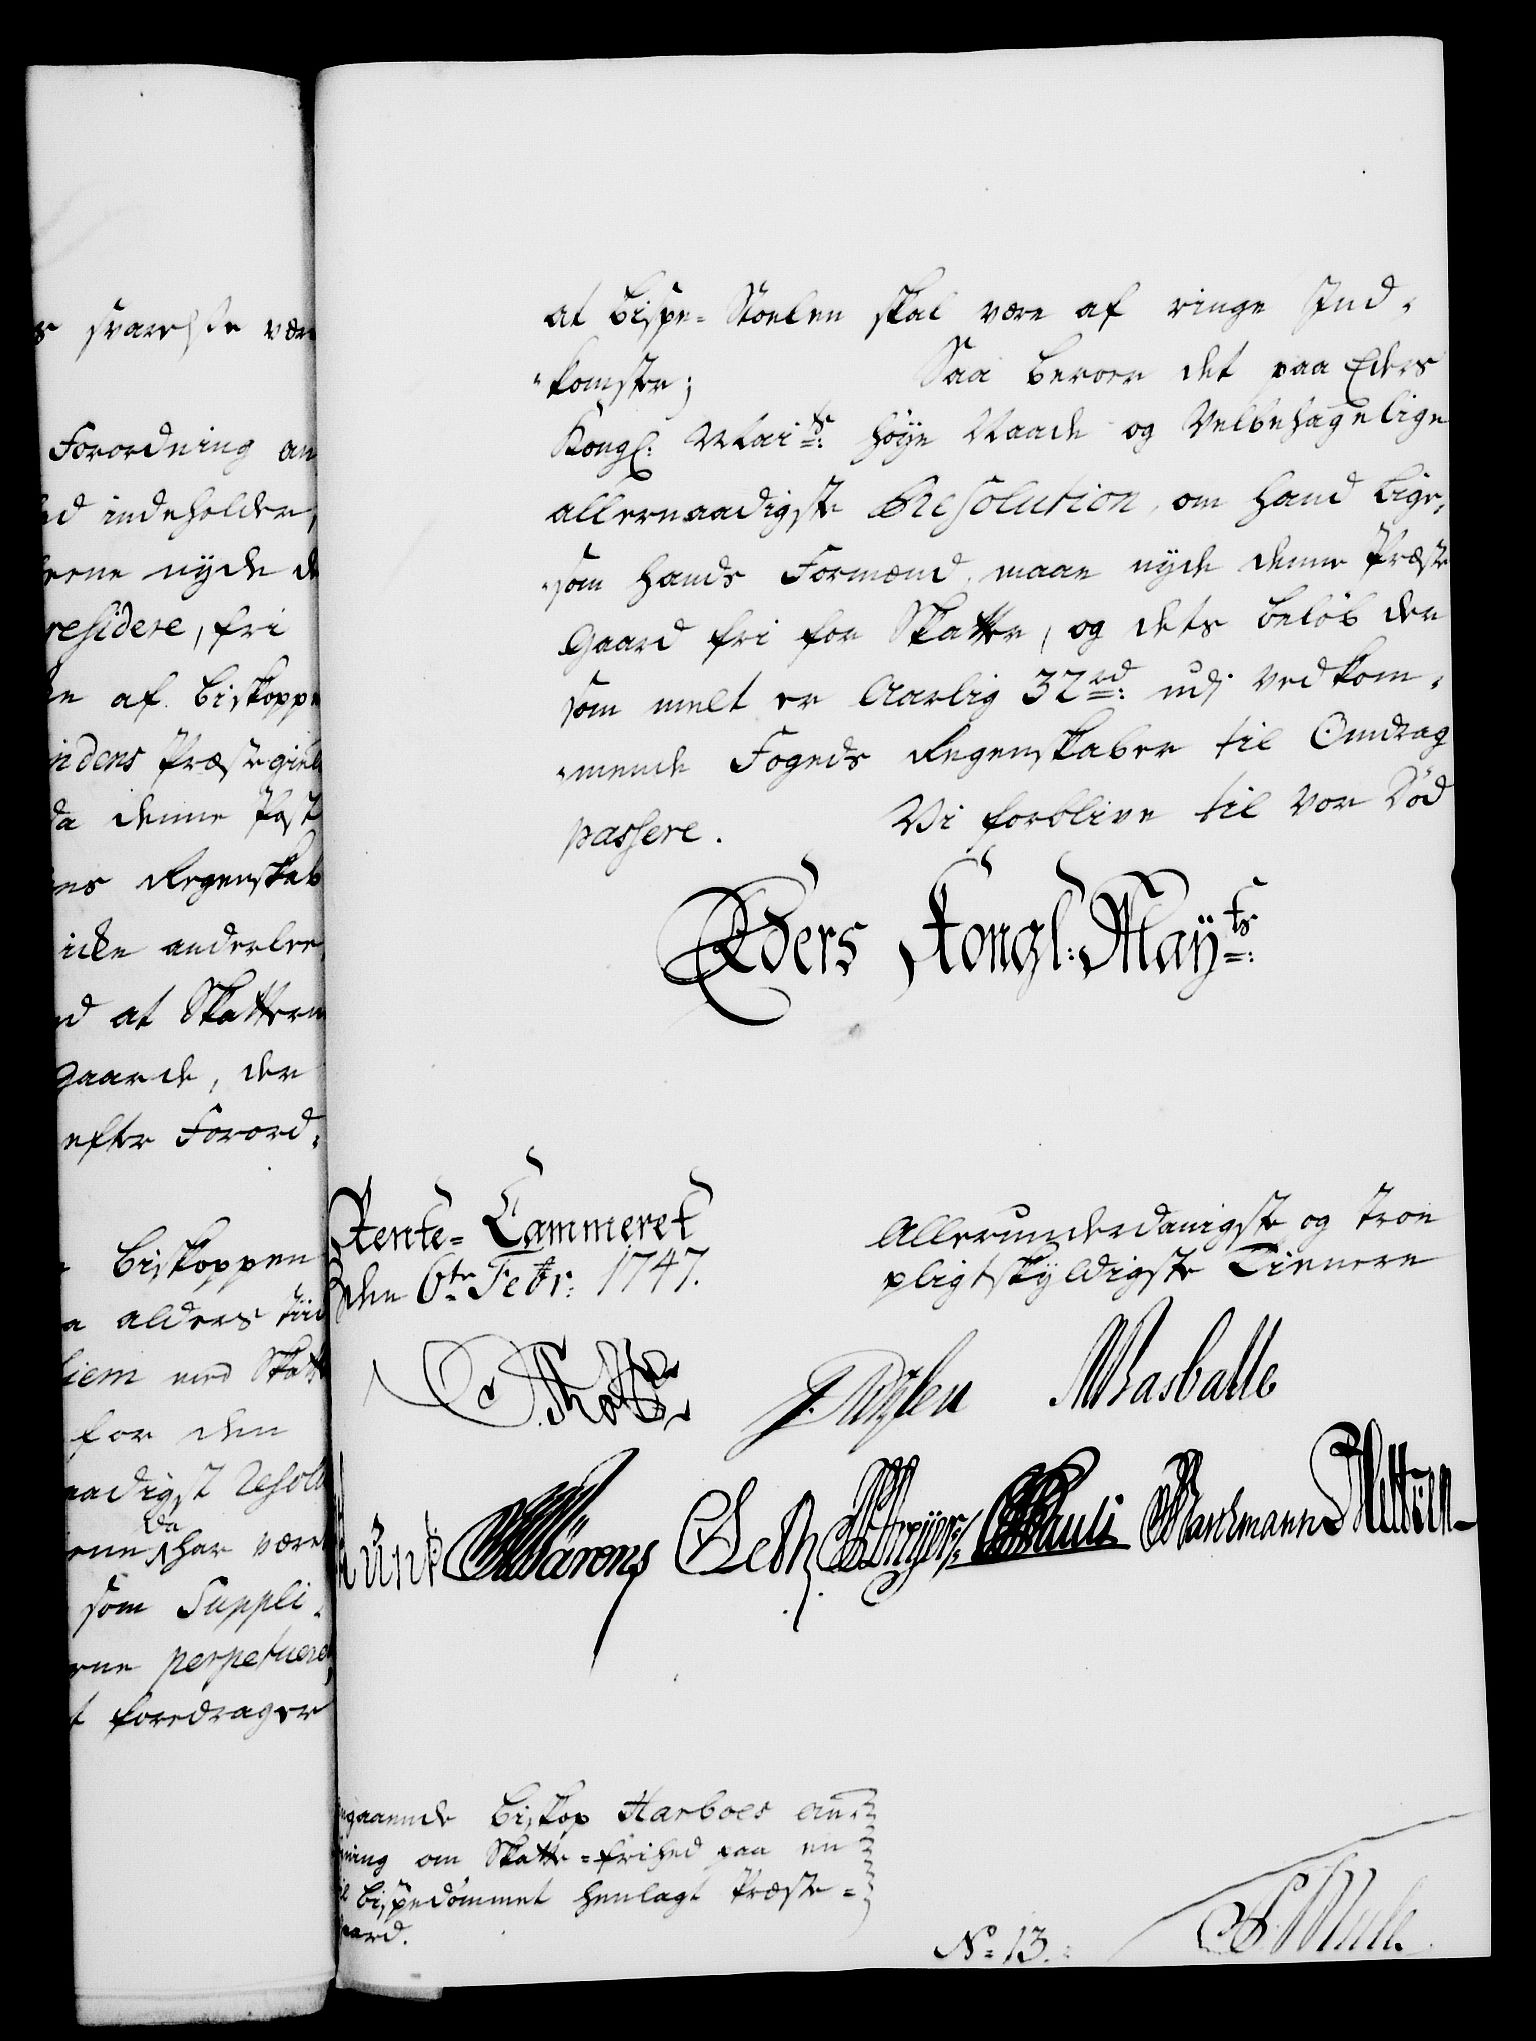 s svarehste være
Forordning an
ed indeholder,
erne nyde d
residere, fri
en af Biskoppe
indens Præstegiel
da denne Post
nes Regenskab
icke anderlee
ed at Skatterne
gaarde, der
efter Forord-
Biskoppen
a alders tiid
hiem med Skatt
for den
naadigst Resolu
erne da har været
som Suppli-
rne perpetuere
t foredrager
at Bispe-Stoelen skal være af ringe Ind-
-komster; Saa beroer det paa Eders
Kongl: Mai:ts høye Naade og Velbehagelige
allernaadigste Resolution, om hand lige-
-som hands Formænd, maae nyde denne Præste
Gaard fri for Skatter, og dets beløb der
som melt er Aarlig 32 rd: udj vedkom-
-mende Fogeds Regenskaber til Omdrag
passere. Vi forblive til vor Død
Eders Kongl: May:ts
Rente-Cammeret
den 6te Febr: 1747.
Allerunderdanigste og troe
pligtskyldigste Tienere
O Thott
Rasballe
Leth
Pauli
ngaaende Biskop Harboes an-
ning om Skatte-frihed paa en
il Bispedømmet henlagt Præste-
aard.
No 13.